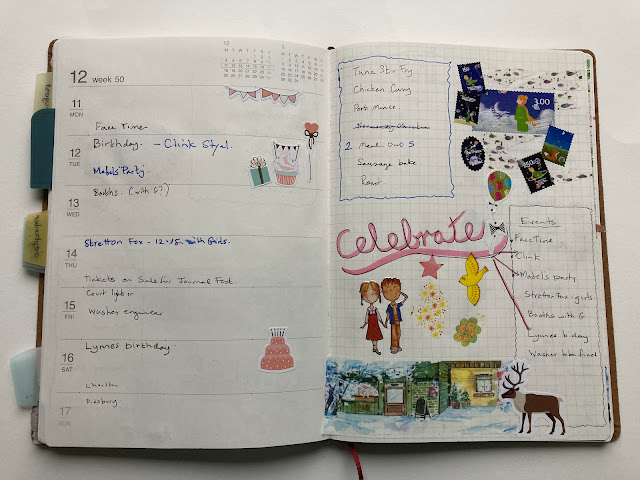 12 week 50
12
1
M T W T F S S
M T W T F S S
11
MON
FaceTime
12
TUE
Birthday. - Clink Styal.
Mabels Party
13
WED
Booths. (with G?)
14
THU
Stretton Fox - 12.15 with Girls.
Tickets on Sale for Journal Fest.
15
FRI
Court
Washer engineer
16
SAT
Lynnes birthday
Chorlton
17
SUN
Didsbury
Tuna Stir Fry
Chicken Curry
Pork Mince
2 Meal Out S
Sausage bake
Roast
3.00
Celebrate
Events
FaceTime
Clink
Mabels party
Stretton Fox - girls
Booths with G
Lynnes b day
Washer to be fixed